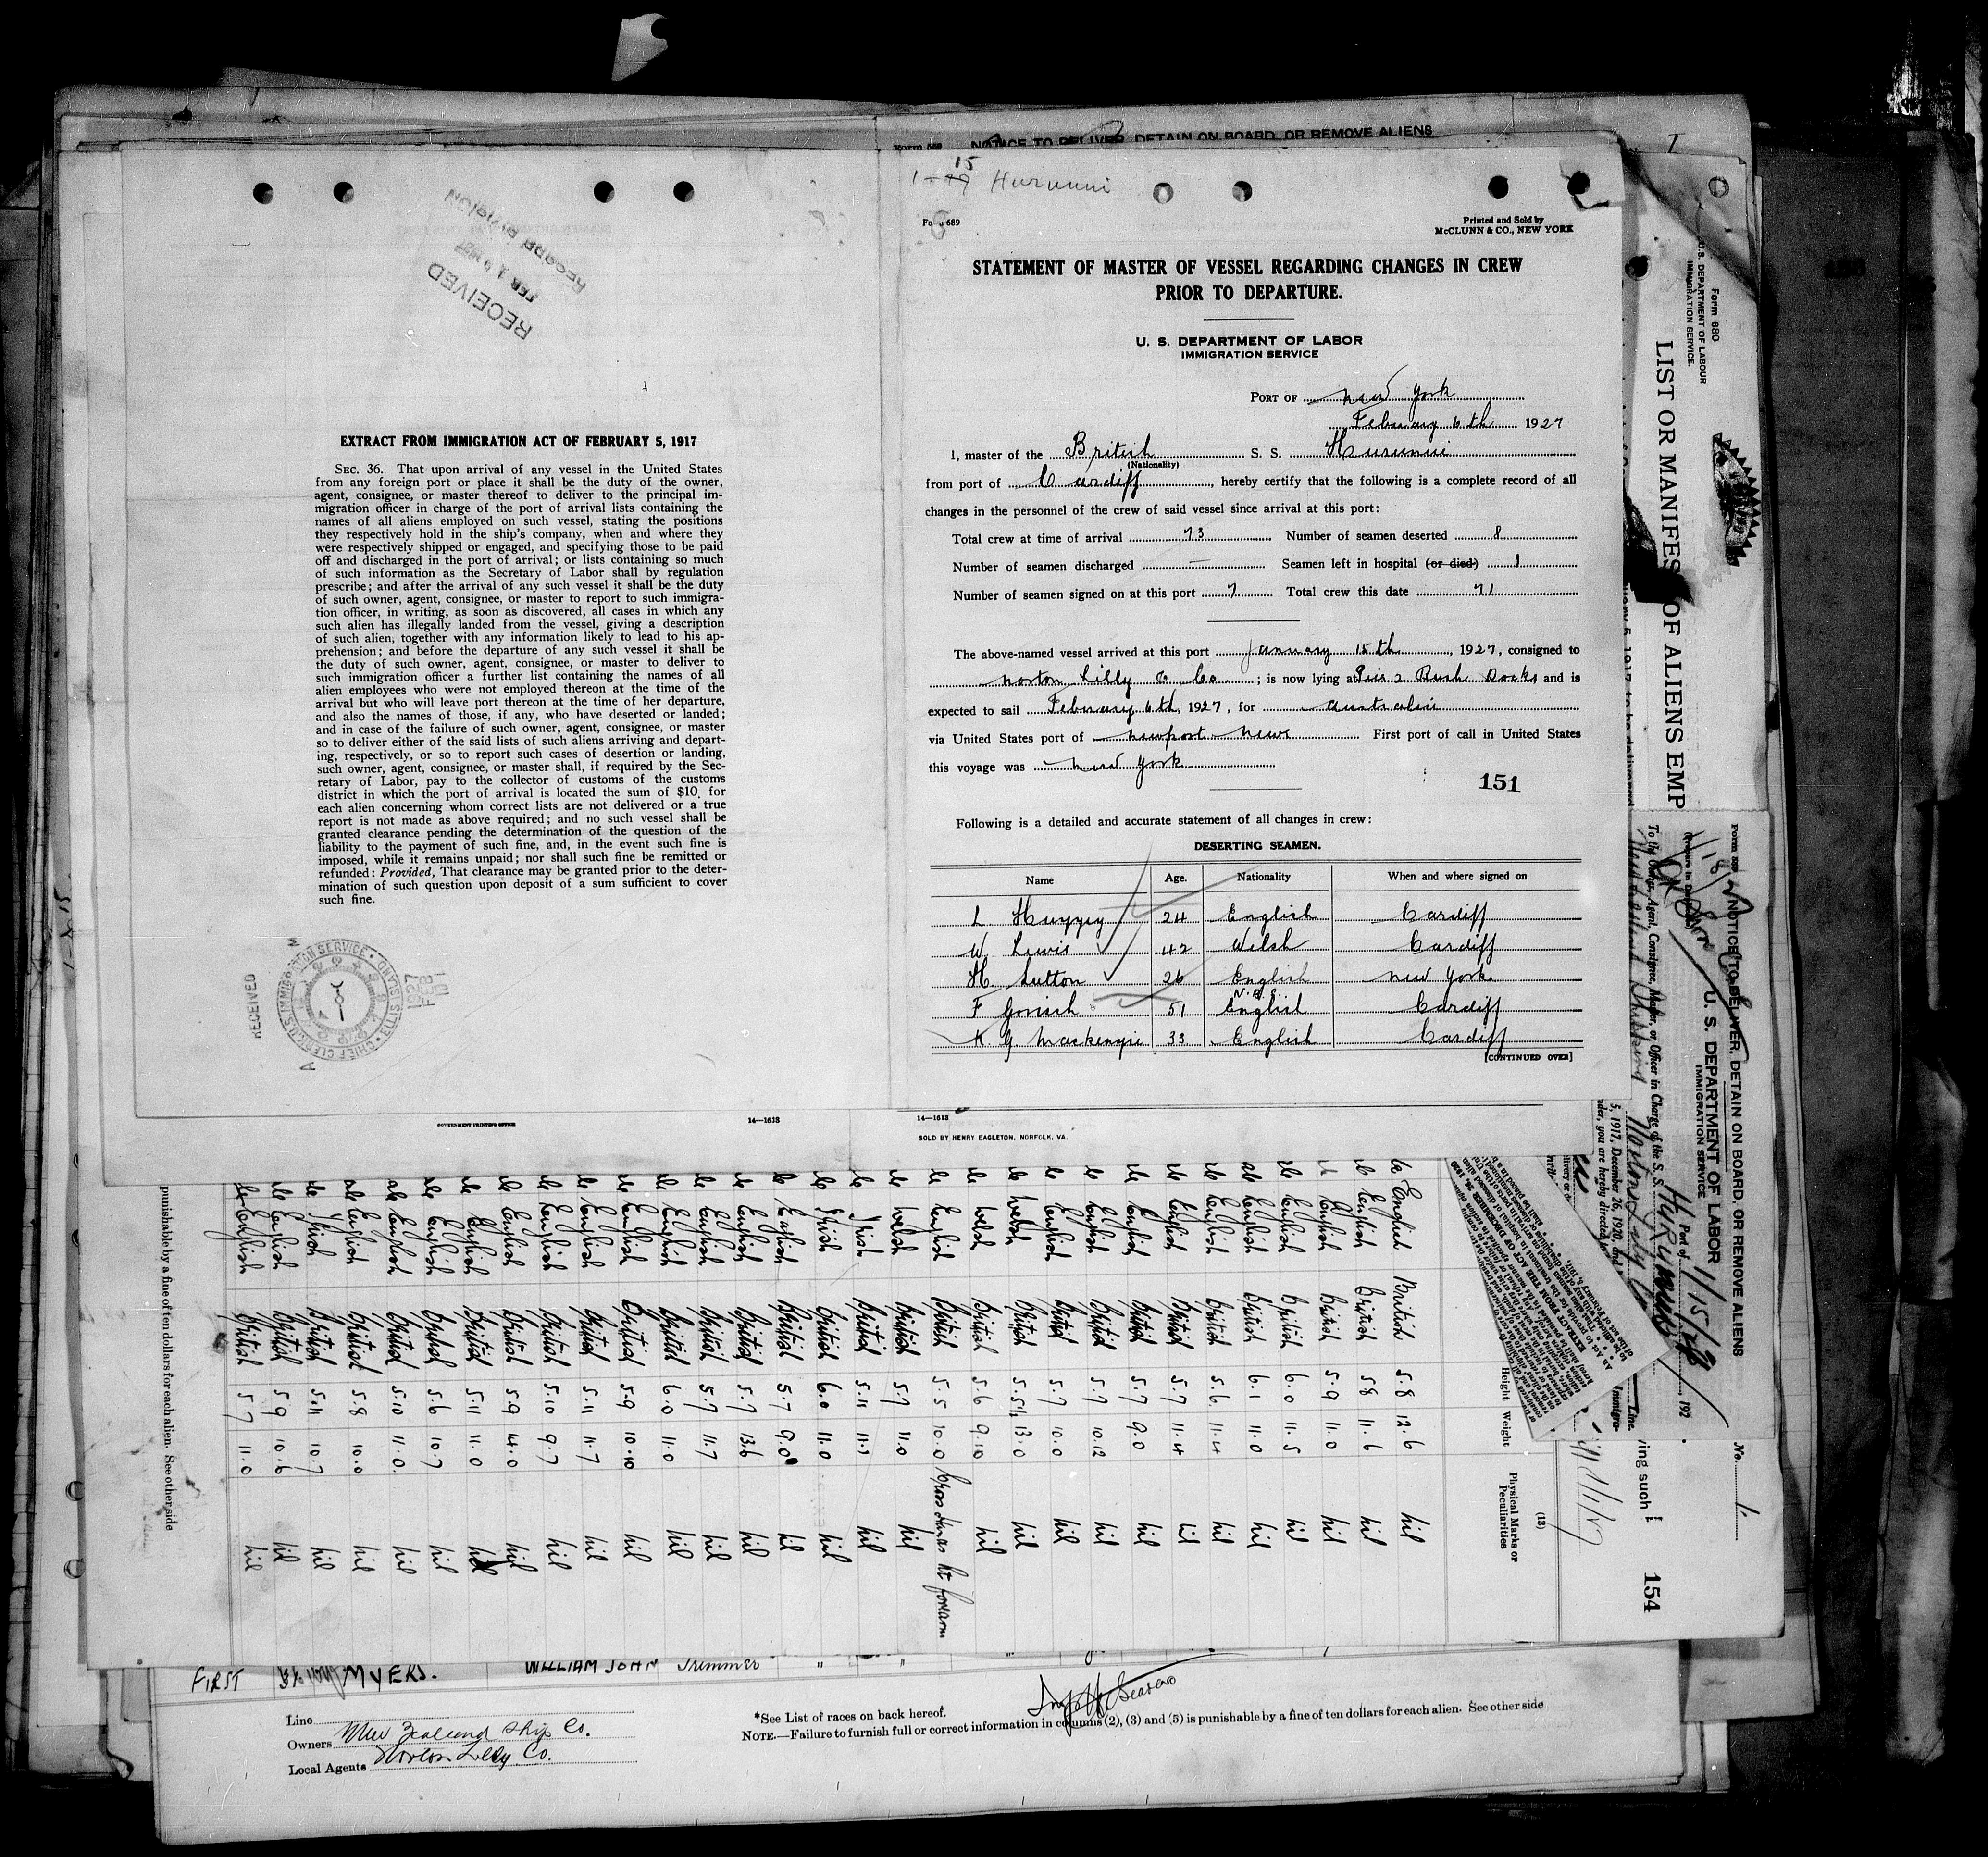 Form 589 NOTICE TO DELIVER, DETAIN ON BOARD, OR REMOVE ALIENS
15
1-19 Hurunui
Form 689
Printed and Sold by
McCLUNN & CO., NEW YORK
STATEMENT OF MASTER OF VESSEL REGARDING CHANGES IN CREW
PRIOR TO DEPARTURE.
U. S. DEPARTMENT OF LABOR
IMMIGRATION SERVICE
PORT OF New York
February 6th 1927
I, master of the British S. S. Hurunui
(Nationality)
from port of Cardiff, hereby certify that the following is a complete record of all
changes in the personnel of the crew of said vessel since arrival at this port:
Total crew at time of arrival 73 Number of seamen deserted 8
Number of seamen discharged — Seamen left in hospital (or died) 1
Number of seamen signed on at this port 7 Total crew this date 71
The above-named vessel arrived at this port January 15th, 1927, consigned to
Norton Lilly & Co; is now lying at Pier 2 Bush Docks and is
expected to sail February 6th, 1927, for Australia
via United States port of Newport News First port of call in United States
this voyage was New York
151
Following is a detailed and accurate statement of all changes in crew:
DESERTING SEAMEN.
Name Age. Nationality When and where signed on
L Huggey 24 English Cardiff
W. Lewis 42 Welsh Cardiff
H. Sutton 26 English New York
F Gorsich 51 English Cardiff
K G Mackenzie 33 English Cardiff
[CONTINUED OVER]
RECEIVED
FEB 19 1927
RECORD DIVISION
EXTRACT FROM IMMIGRATION ACT OF FEBRUARY 5, 1917
SEC. 36. That upon arrival of any vessel in the United States
from any foreign port or place it shall be the duty of the owner,
agent, consignee, or master thereof to deliver to the principal im-
migration officer in charge of the port of arrival lists containing the
names of all aliens employed on such vessel, stating the positions
they respectively hold in the ship's company, when and where they
were respectively shipped or engaged, and specifying those to be paid
off and discharged in the port of arrival; or lists containing so much
of such information as the Secretary of Labor shall by regulation
prescribe; and after the arrival of any such vessel it shall be the duty
of such owner, agent, consignee, or master to report to such immigra-
tion officer, in writing, as soon as discovered, all cases in which any
such alien has illegally landed from the vessel, giving a description
of such alien, together with any information likely to lead to his ap-
prehension; and before the departure of any such vessel it shall be
the duty of such owner, agent, consignee, or master to deliver to
such immigration officer a further list containing the names of all
alien employees who were not employed thereon at the time of the
arrival but who will leave port thereon at the time of her departure,
and also the names of those, if any, who have deserted or landed;
and in case of the failure of such owner, agent, consignee, or master
so to deliver either of the said lists of such aliens arriving and depart-
ing, respectively, or so to report such cases of desertion or landing,
such owner, agent, consignee, or master shall, if required by the Sec-
retary of Labor, pay to the collector of customs of the customs
district in which the port of arrival is located the sum of $10 for
each alien concerning whom correct lists are not delivered or a true
report is not made as above required; and no such vessel shall be
granted clearance pending the determination of the question of the
liability to the payment of such fine, and, in the event such fine is
imposed, while it remains unpaid; nor shall such fine be remitted or
refunded: Provided, That clearance may be granted prior to the deter-
mination of such question upon deposit of a sum sufficient to cover
such fine.
RECEIVED
CHIEF CLERK U.S. IMMIGRATION SERVICE ELLIS ISLAND
1927 FEB
GOVERNMENT PRINTING OFFICE
14—1618
14—1613
SOLD BY HENRY EAGLETON, NORFOLK, VA.
Form 680
U.S. DEPARTMENT OF LABOUR
IMMIGRATION SERVICE.
LIST OR MANIFEST OF ALIENS EMP
NOTICE TO DELIVER, DETAIN ON BOARD, OR REMOVE ALIENS
U. S. DEPARTMENT OF LABOR
IMMIGRATION SERVICE
Port of 192
To the Owner, Agent, Consignee, Master, or Officer in Charge of the S. S. Hurunui
No. 1
154
(13)
Physical Marks or
Peculiarities
Height Weight
English British 5.8 12.6 nil
English British 5.8 11.6 nil
English British 5.9 11.0 nil
English British 6.0 11.5 nil
English British 6.1 11.0 nil
English British 5.6 11.4 nil
English British 5.7 11.4 nil
English British 5.7 9.0 nil
English British 5.7 10.12 nil
English British 5.7 10.0 nil
Welsh British 5.5½ 13.0 nil
Welsh British 5.6 9.10 nil
English British 5.5 10.0 forearm
Welsh British 5.7 11.0 nil
Irish British 5.11 11.7 nil
Irish British 6.0 11.0 nil
English British 5.7 9.0 nil
English British 5.7 13.6 nil
English British 5.7 11.7 nil
English British 6.0 11.0 nil
English British 5.9 10.10 nil
English British 5.11 11.7 nil
English British 5.10 9.7 nil
English British 5.9 14.0 nil
English British 5.11 11.0 nil
English British 5.6 10.7 nil
English British 5.10 11.0 nil
English British 5.8 10.0 nil
Irish British 5.11 10.7 nil
English British 5.9 10.6 nil
English British 5.7 11.0 nil
punishable by a fine of ten dollars for each alien. See other side
FIRST MYERS. WILLIAM JOHN Trimmer " "
Line
Owners New Zealand Ship Co.
Local Agents Norton Lilly Co.
*See List of races on back hereof.
NOTE.—Failure to furnish full or correct information in columns (2), (3) and (5) is punishable by a fine of ten dollars for each alien. See other side